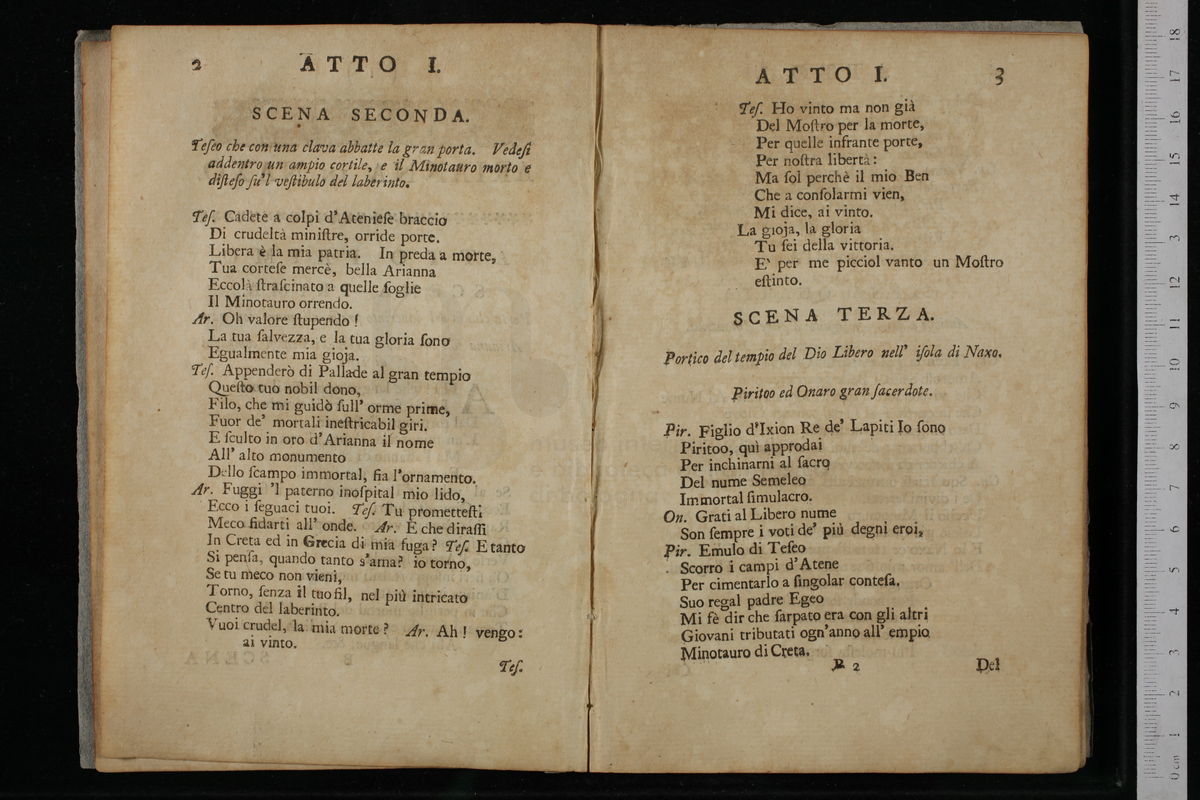 2 ATTO I.
SCENA SECONDA.
Teſeo che con una clava abbatte la gran porta. Vedeſi
addentro un ampio cortile, e il Minotauro morto e
diſteſo ſu'l veſtibulo del laberinto.
Teſ. Cadete a colpi d'Atenieſe braccio
Di crudeltà miniſtre, orride porte.
Libera è la mia patria. In preda a morte,
Tua corteſe mercè, bella Arianna
Eccolà ſtraſcinato a quelle ſoglie
Il Minotauro orrendo.
Ar. Oh valore ſtupendo!
La tua ſalvezza, e la tua gloria ſono
Egualmente mia gioja.
Teſ. Appenderò di Pallade al gran tempio
Queſto tuo nobil dono,
Filo, che mi guidò ſull' orme prime,
Fuor de' mortali ineſtricabil giri.
E ſculto in oro d'Arianna il nome
All' alto monumento
Dello ſcampo immortal, ſia l'ornamento.
Ar. Fuggi 'l paterno inoſpital mio lido,
Ecco i ſeguaci tuoi. Teſ. Tu prometteſti
Meco fidarti all' onde. Ar. E che diraſſi
In Creta ed in Grecia di mia fuga? Teſ. E tanto
Si penſa, quando tanto s'ama? io torno,
Se tu meco non vieni,
Torno, ſenza il tuo fil, nel più intricato
Centro del laberinto.
Vuoi crudel, la mia morte? Ar. Ah! vengo:
ai vinto.
Teſ.
ATTO I. 3
Teſ. Ho vinto ma non già
Del Moſtro per la morte,
Per quelle infrante porte,
Per noſtra libertà:
Ma ſol perchè il mio Ben
Che a conſolarmi vien,
Mi dice, ai vinto.
La gioja, la gloria
Tu ſei della vittoria.
E' per me picciol vanto un Moſtro
eſtinto.
SCENA TERZA.
Portico del tempio del Dio Libero nell' iſola di Naxo.
Piritoo ed Onaro gran ſacerdote.
Pir. Figlio d'Ixion Re de' Lapiti Io ſono
Piritoo, quì approdai
Per inchinarmi al ſacro
Del nume Semeleo
Immortal ſimulacro.
On. Grati al Libero nume
Son ſempre i voti de' più degni eroi,
Pir. Emulo di Teſeo
Scorro i campi d'Atene
Per cimentarlo a ſingolar conteſa,
Suo regal padre Egeo
Mi fè dir che ſarpato era con gli altri
Giovani tributati ogn'anno all' empio
Minotauro di Creta.
B 2 Del